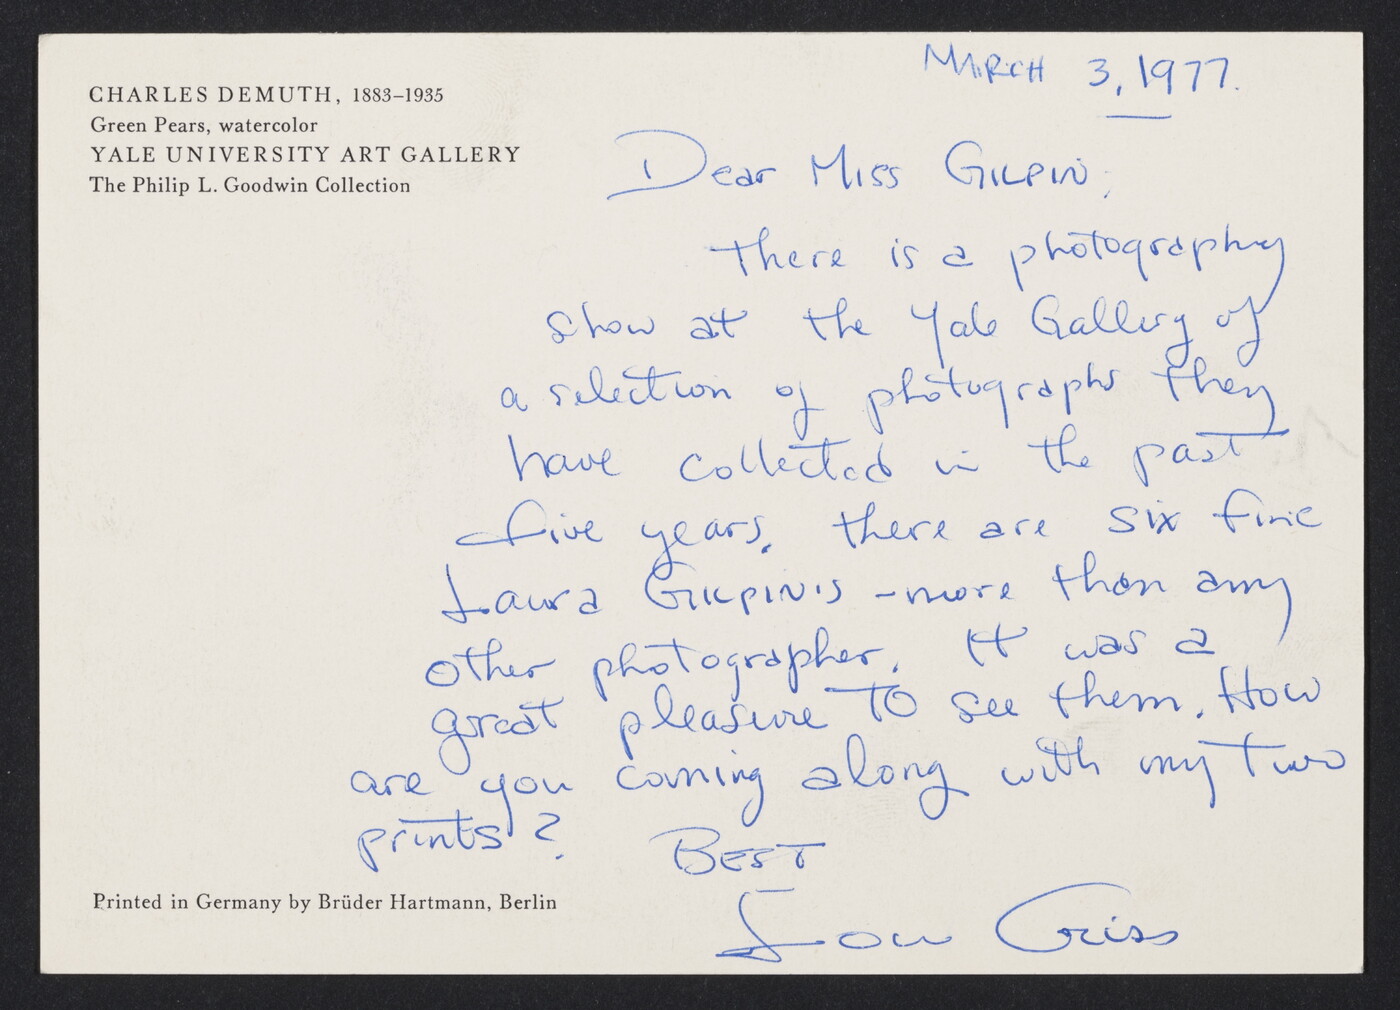 CHARLES DEMUTH, 1883–1935
Green Pears, watercolor
YALE UNIVERSITY ART GALLERY
The Philip L. Goodwin Collection
MARCH 3, 1977.
Dear Miss GILPIN;
There is a photography
show at the Yale Gallery of
a selection of photographs they
have collected in the past
five years. There are six fine
Laura GILPIN'S – more than any
other photographer. It was a
great pleasure to see them. How
are you coming along with my two
prints?
BEST
Lou Griss
Printed in Germany by Brüder Hartmann, Berlin